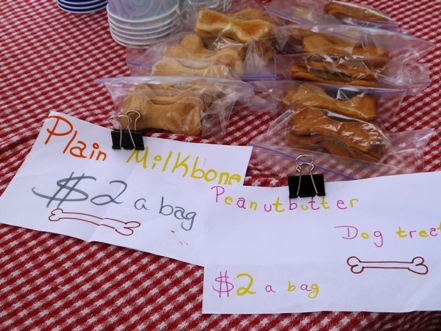 Plain Milkbone
$2 a bag
Peanutbutter
Dog treat
$2 a bag